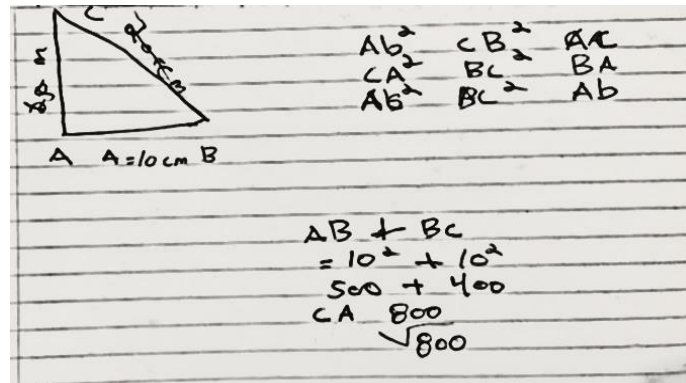 C
A A=10cm B
Ab² CB² AC
CA² BC² BA
Ab² BC² Ab
AB + BC
= 10² + 10²
500 + 400
CA 800
√800